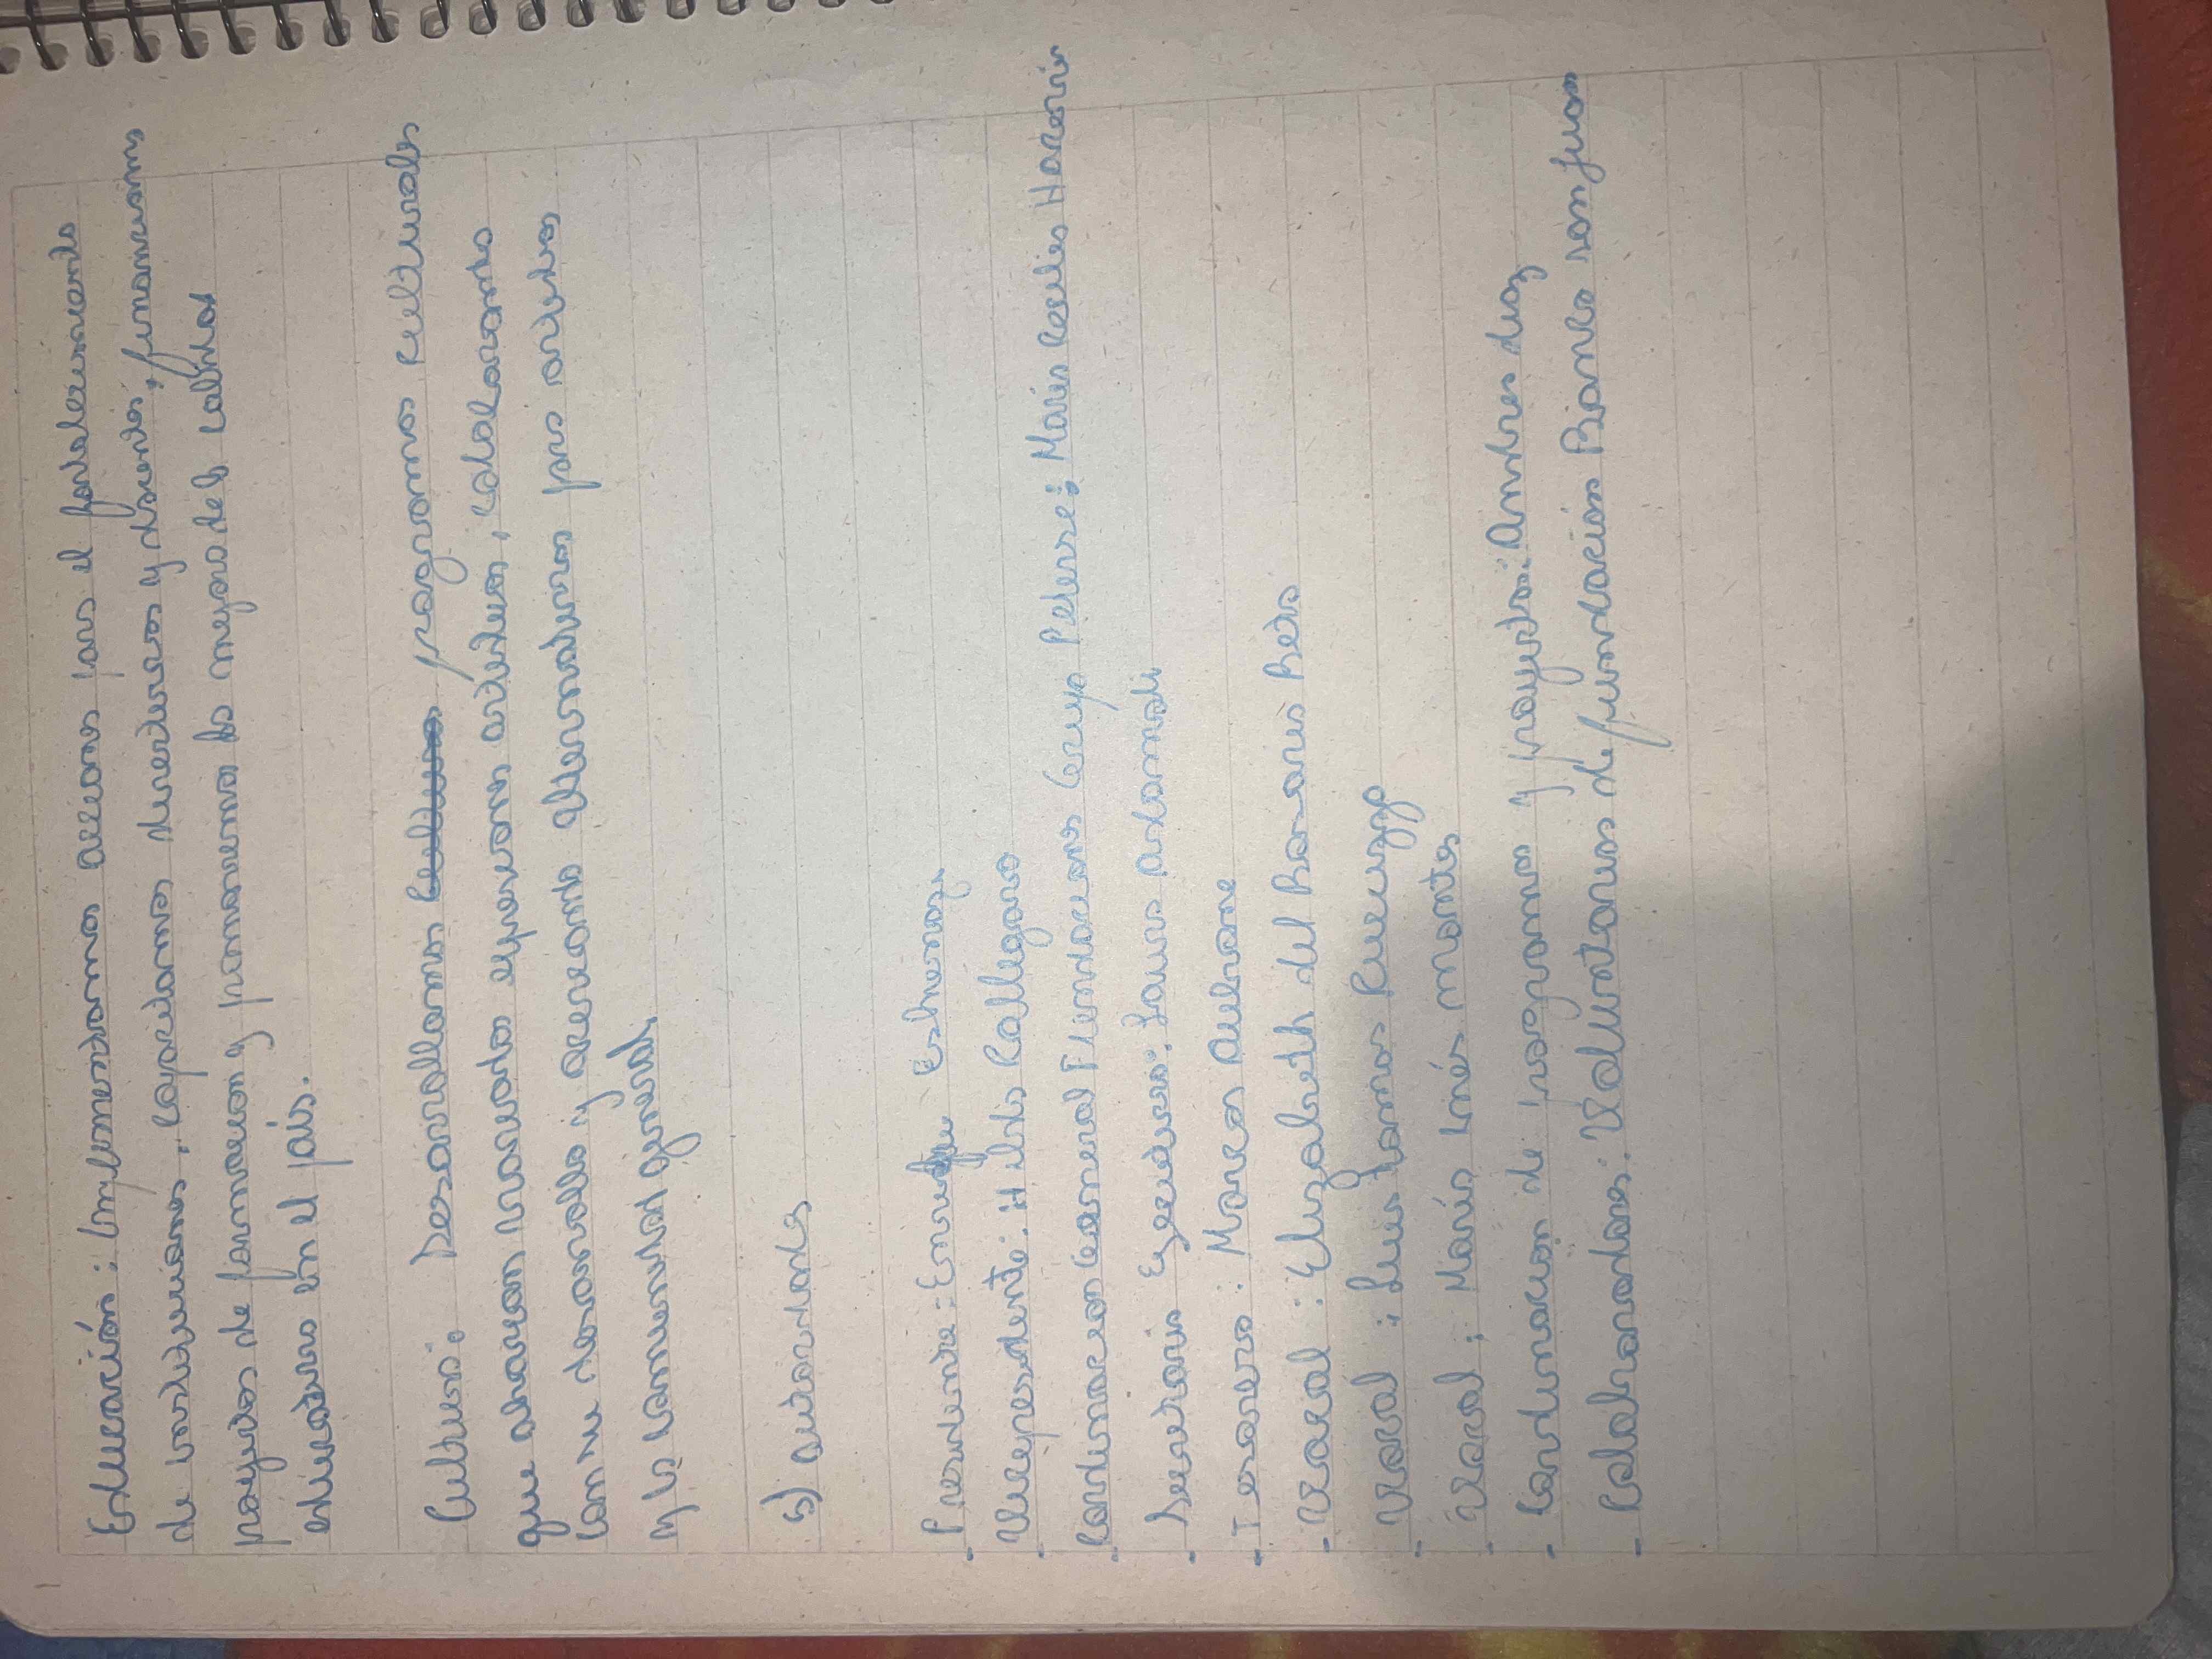 Educación: Implementamos acciones para el fortalecimiento
de instituciones, capacitamos directivos y docentes, financiamos
proyectos de formación y promovemos la mejora de la calidad
educativa en el país.
Cultura: Desarrollamos programas culturales
que abarcan variadas expresiones artísticas, colaborando
con su desarrollo y acercando alternativas para artistas
y la comunidad general.
5) autoridades
- Presidente: Enrique Eskenazi
- Vicepresidente: Hilda Callegaro
- Coordinacion General Fundacions Grupo Petersen: María Cecilia
- Secretaria Ejecutiva: Laura
- Tesorero: Marcos
- Vocal: Elizabeth del
- Vocal: Luis Tomas
- Vocal: María Inés Montes
- Coordinación de programas y proyectos: Andres diaz
- Colaboradores: Voluntarios de fundación Banco san juan